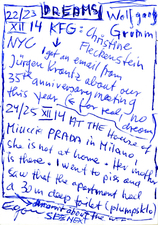 22/23 DREAMS Wolfgang
XII 14 KFG: Christine Gramm
NYC Fleckenstein
I got an email from
Jürgen Krantz about our
35th anniversary meeting
this year (for real, no
24/25 XII 14 AT THE house of dream
Miuccia PRADA in Milano,
she is not at home. Her
is there. I went to piss and
saw that the apartment had
a 30m deep toilet (plumpsklo)
Egon
SEGNENT